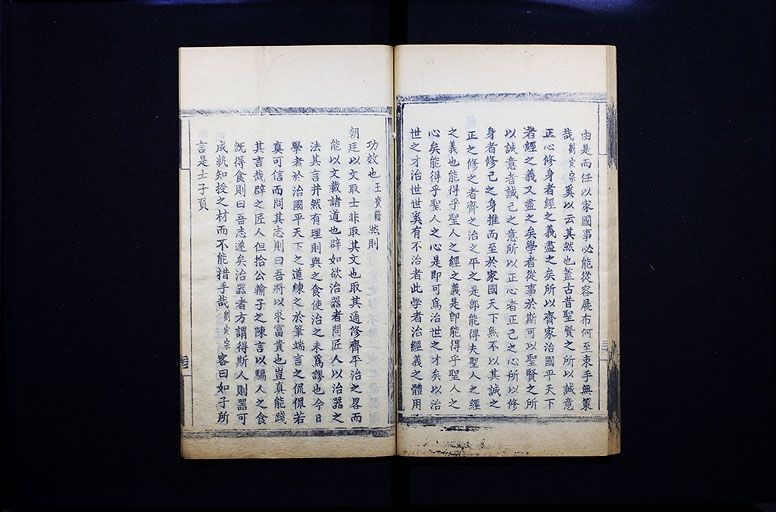 由是而任以家國事必能從容展布何至束手無策
哉劉定宗奚以云其然也蓋古昔聖賢之所以誠意
正心修身者經之義盡之矣所以齊家治國平天下
者經之義又盡之矣學者從事於斯可以聖賢之所
以誠意者誠己之意所以正心者正己之心所以修
身者修己之身推而至於家國天下無不以其誠之
正之修之者齊之治之平之是即能得夫聖人之經
之義也能得乎聖人之經之義是即能得乎聖人之
心矣能得乎聖人之心是即可為治世之才矣以治
世之才治世世奚有不治者此學者治經義之體用
功效也王賓籍然則
朝廷以文取士非取其文也取其通修齊平治之畧而
能以文載諸道也辟如欲治器者問匠人以治器之
法其言井然有理則與之食使治之未為謬也今日
學者於治國平天下之道練之於筆端言之侃侃若
真可信而問其志則曰吾將以求富貴也豈真能踐
其言哉辟之匠人但拾公輸子之陳言以騙人之食
既得食則曰吾志遂矣治器者方謂得斯人則器可
成孰知授之材而不能措手哉劉定宗客曰如子所
言是士子頁